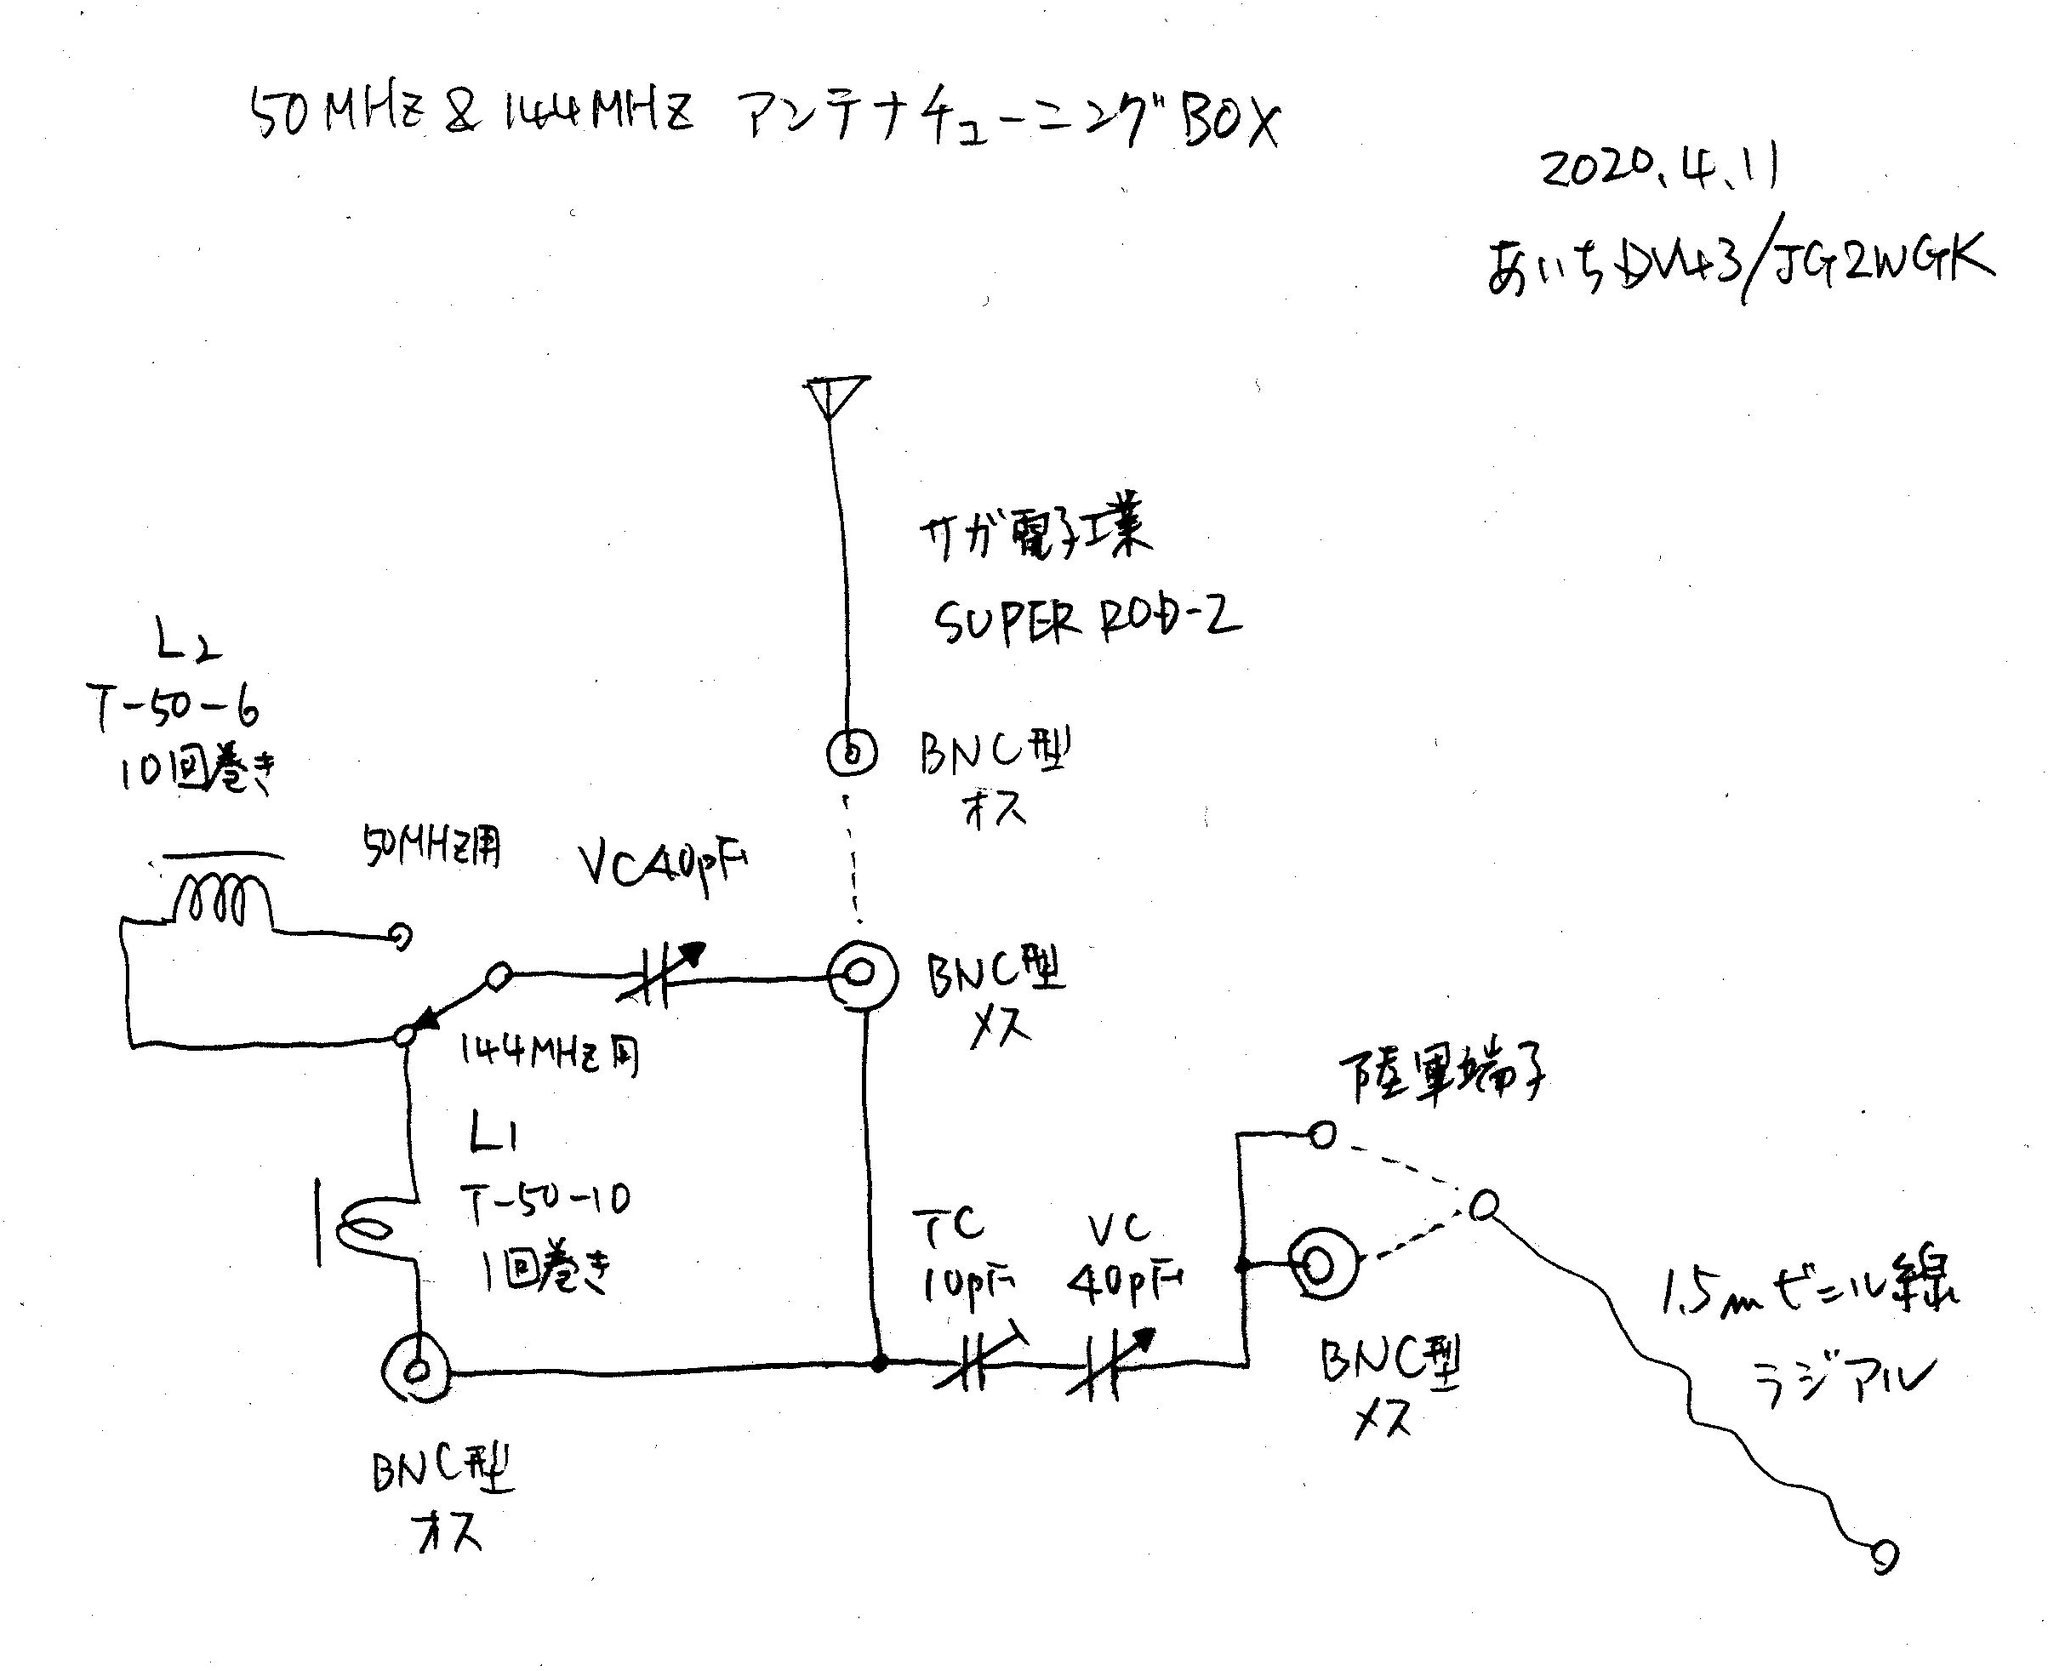 50MHz & 144MHz アンテナチューニングBOX
2020.4.11
あいちDV43/JG2WGK
サガ電子工業
SUPER ROD-2
L2
T-50-6
10回巻き
BNC型
オス
50MHz用
VC40pF
BNC型
メス
144MHz用
陸軍端子
L1
T-50-10
1回巻き
TC
10pF
VC
40pF
1.5mビニル線
ラジアル
BNC型
メス
BNC型
オス